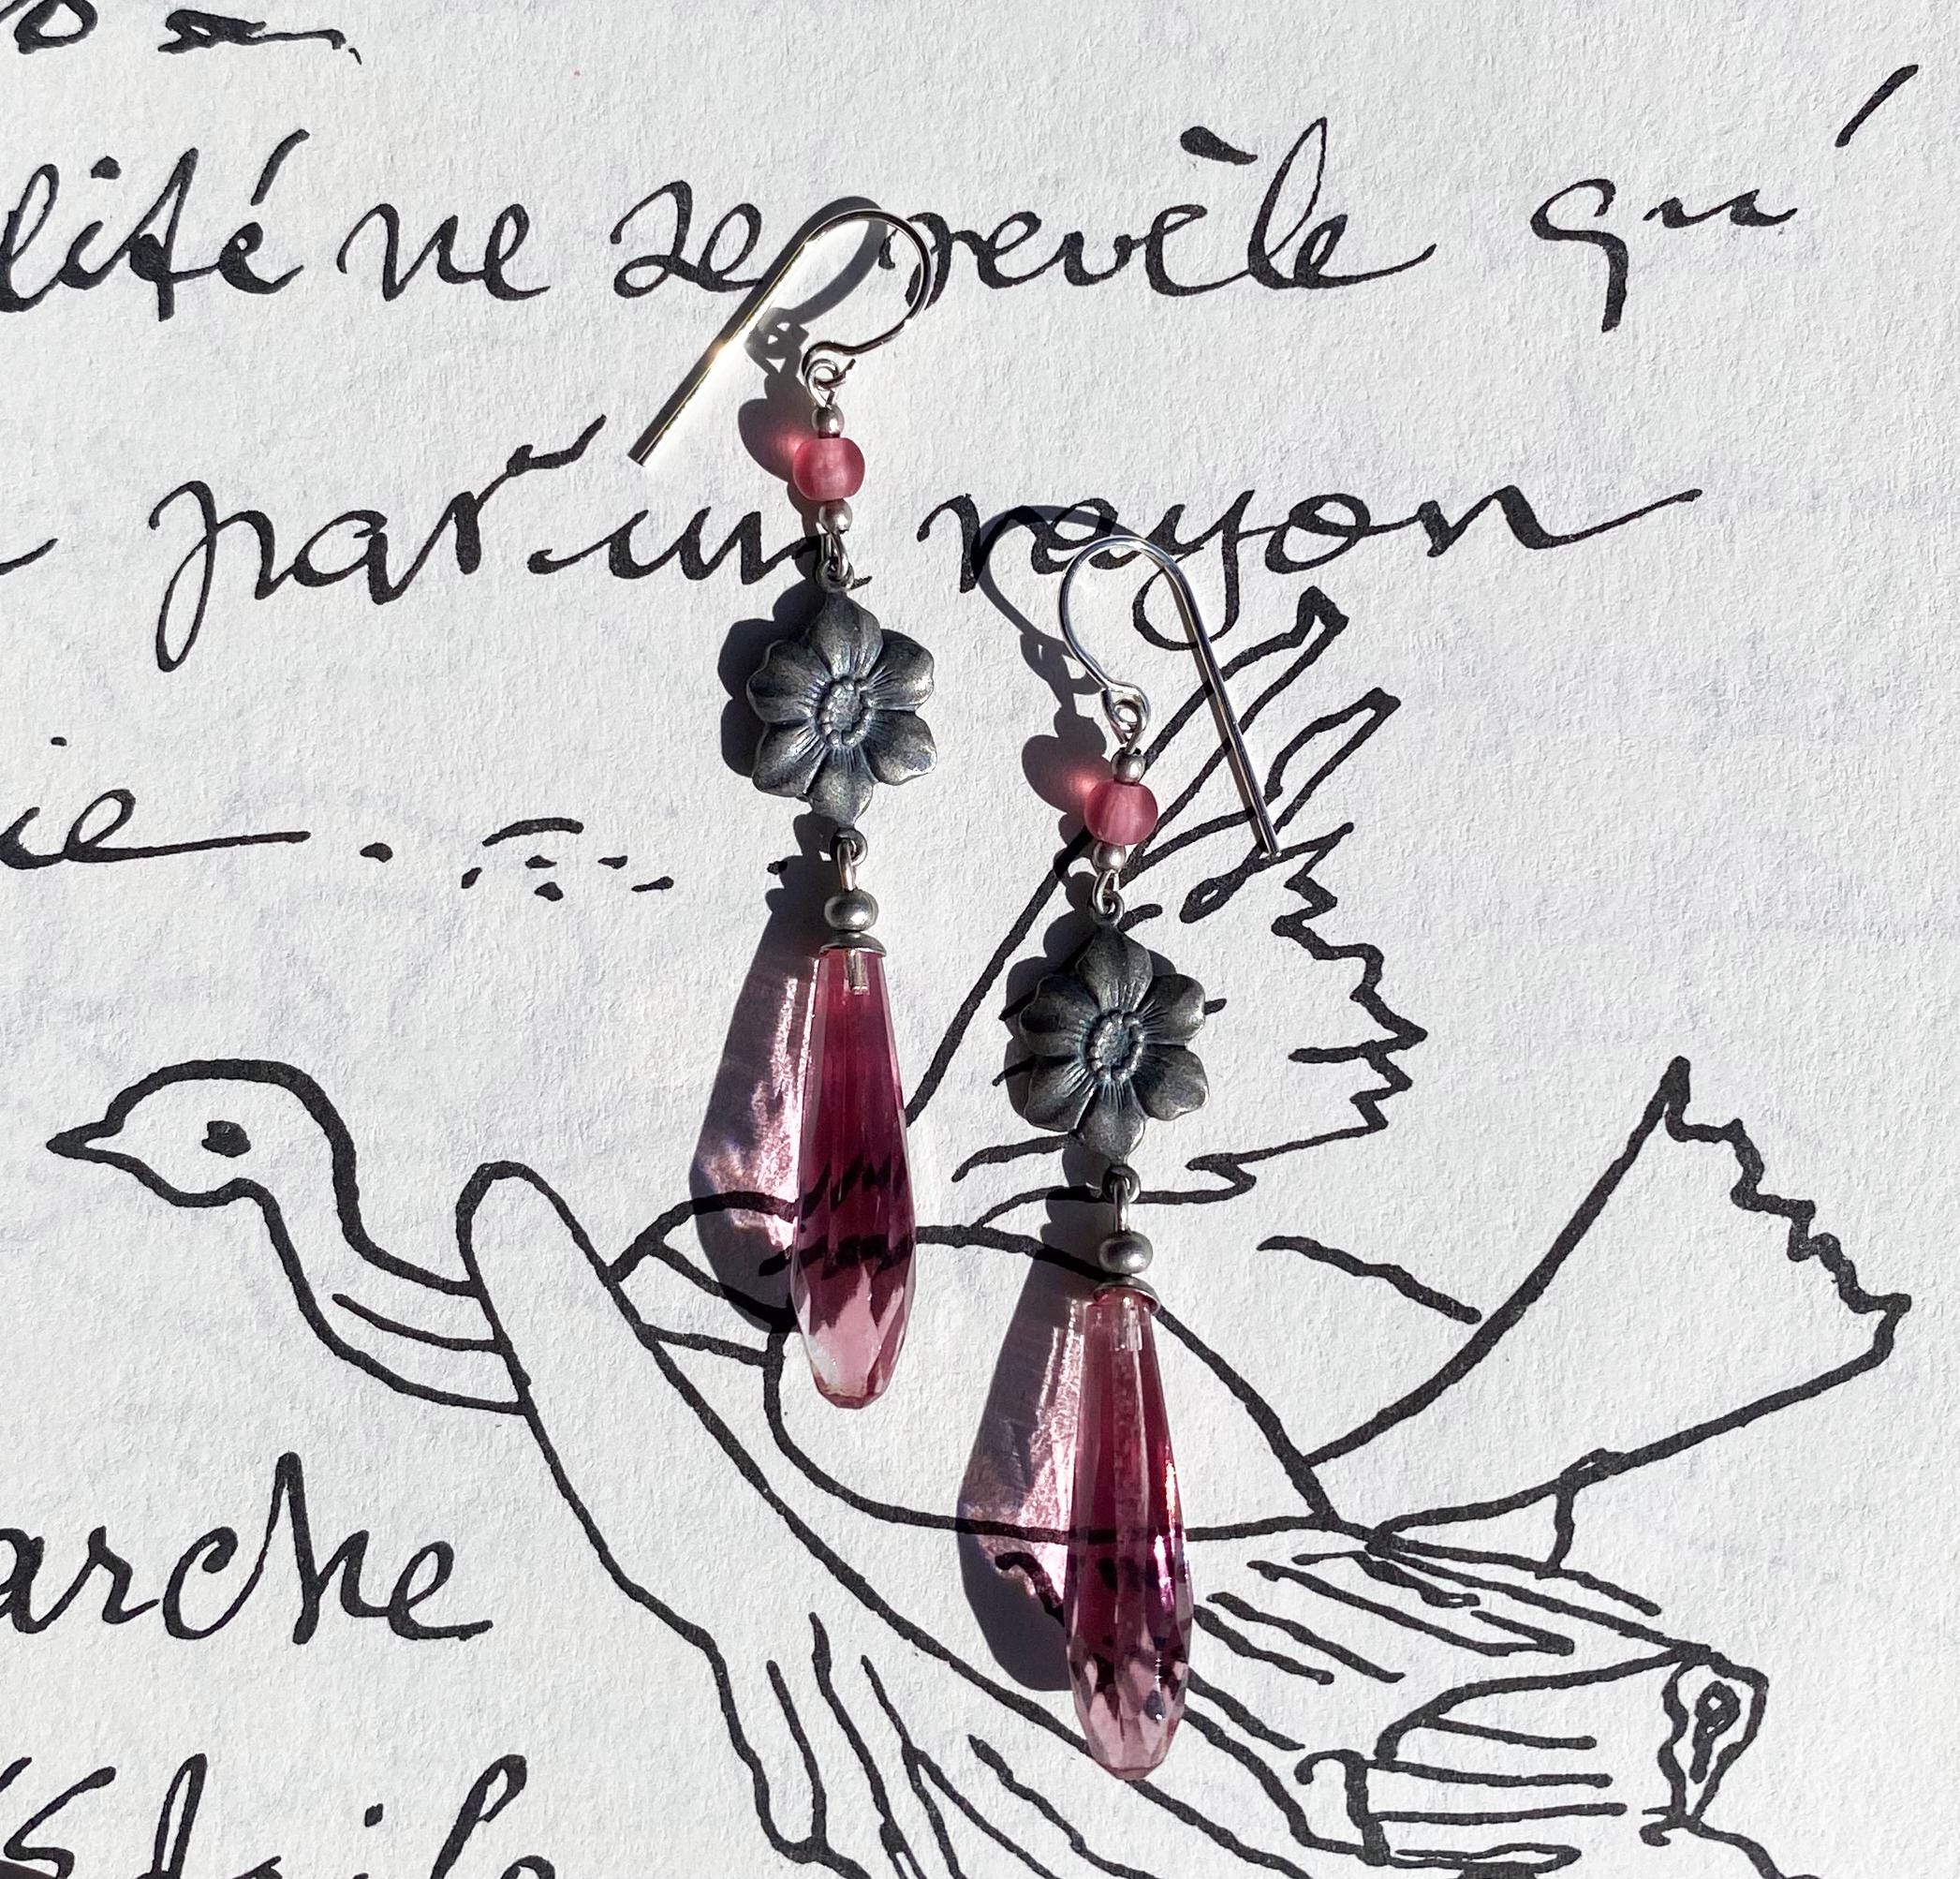 lité ne se revèle qu'
par un rayon
ie
arche
Étoile